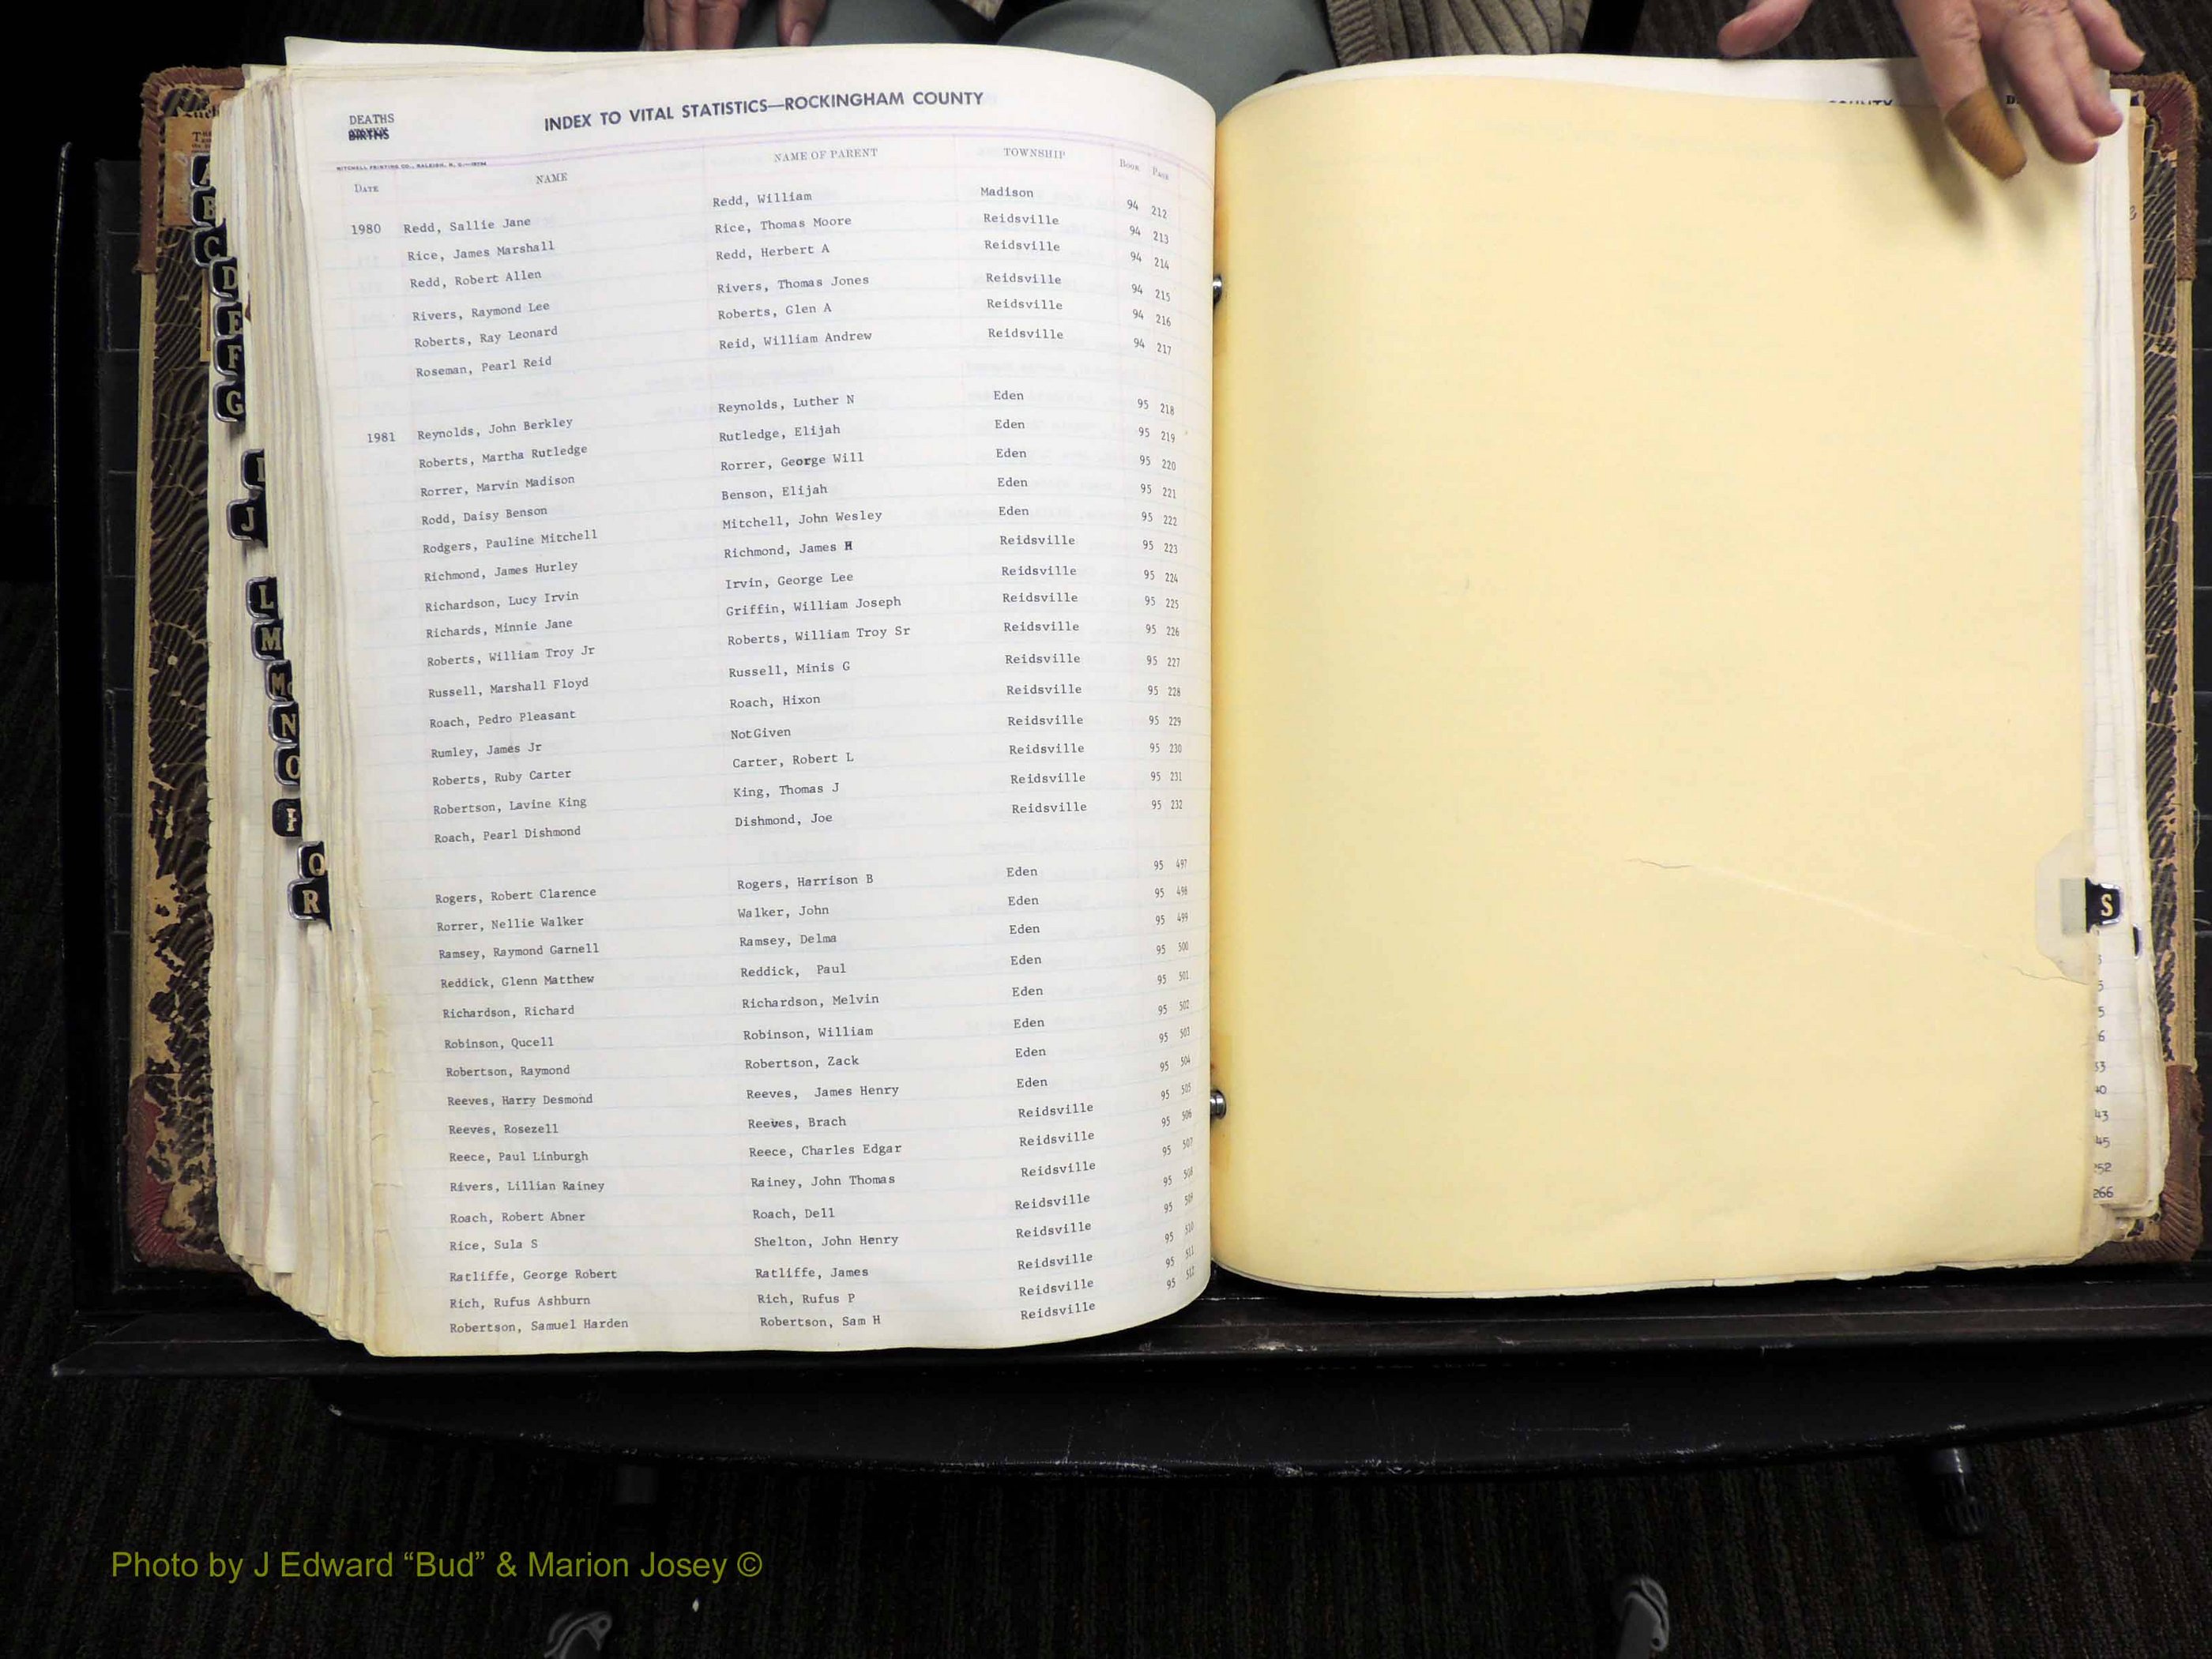 DEATHS
BIRTHS
INDEX TO VITAL STATISTICS—ROCKINGHAM COUNTY
MITCHELL PRINTING CO., RALEIGH, N. C.
DATE NAME NAME OF PARENT TOWNSHIP BOOK PAGE
1980 Redd, Sallie Jane Redd, William Madison 94 212
Rice, James Marshall Rice, Thomas Moore Reidsville 94 213
Redd, Robert Allen Redd, Herbert A Reidsville 94 214
Rivers, Raymond Lee Rivers, Thomas Jones Reidsville 94 215
Roberts, Ray Leonard Roberts, Glen A Reidsville 94 216
Roseman, Pearl Reid Reid, William Andrew Reidsville 94 217
1981 Reynolds, John Berkley Reynolds, Luther N Eden 95 218
Roberts, Martha Rutledge Rutledge, Elijah Eden 95 219
Rorrer, Marvin Madison Rorrer, George Will Eden 95 220
Rodd, Daisy Benson Benson, Elijah Eden 95 221
Rodgers, Pauline Mitchell Mitchell, John Wesley Eden 95 222
Richmond, James Hurley Richmond, James H Reidsville 95 223
Richardson, Lucy Irvin Irvin, George Lee Reidsville 95 224
Richards, Minnie Jane Griffin, William Joseph Reidsville 95 225
Roberts, William Troy Jr Roberts, William Troy Sr Reidsville 95 226
Russell, Marshall Floyd Russell, Minis G Reidsville 95 227
Roach, Pedro Pleasant Roach, Hixon Reidsville 95 228
Rumley, James Jr Not Given Reidsville 95 229
Roberts, Ruby Carter Carter, Robert L Reidsville 95 230
Robertson, Lavine King King, Thomas J Reidsville 95 231
Roach, Pearl Dishmond Dishmond, Joe Reidsville 95 232
Rogers, Robert Clarence Rogers, Harrison B Eden 95 497
Rorrer, Nellie Walker Walker, John Eden 95 498
Ramsey, Raymond Garnell Ramsey, Delma Eden 95 499
Reddick, Glenn Matthew Reddick, Paul Eden 95 500
Richardson, Richard Richardson, Melvin Eden 95 501
Robinson, Qucell Robinson, William Eden 95 502
Robertson, Raymond Robertson, Zack Eden 95 503
Reeves, Harry Desmond Reeves, James Henry Eden 95 504
Reeves, Rosezell Reeves, Brach Reidsville 95 505
Reece, Paul Linburgh Reece, Charles Edgar Reidsville 95 506
Rivers, Lillian Rainey Rainey, John Thomas Reidsville 95 507
Roach, Robert Abner Roach, Dell Reidsville 95 508
Rice, Sula S Shelton, John Henry Reidsville 95 509
Ratliffe, George Robert Ratliffe, James Reidsville 95 510
Rich, Rufus Ashburn Rich, Rufus P Reidsville 95 511
Robertson, Samuel Harden Robertson, Sam H Reidsville 95 512
A
B
C
D
E
F
G
I
J
L
M
Mc
N
O
Q
R
COUNTY
S
5
5
6
33
40
43
45
252
266
Photo by J Edward “Bud” & Marion Josey ©